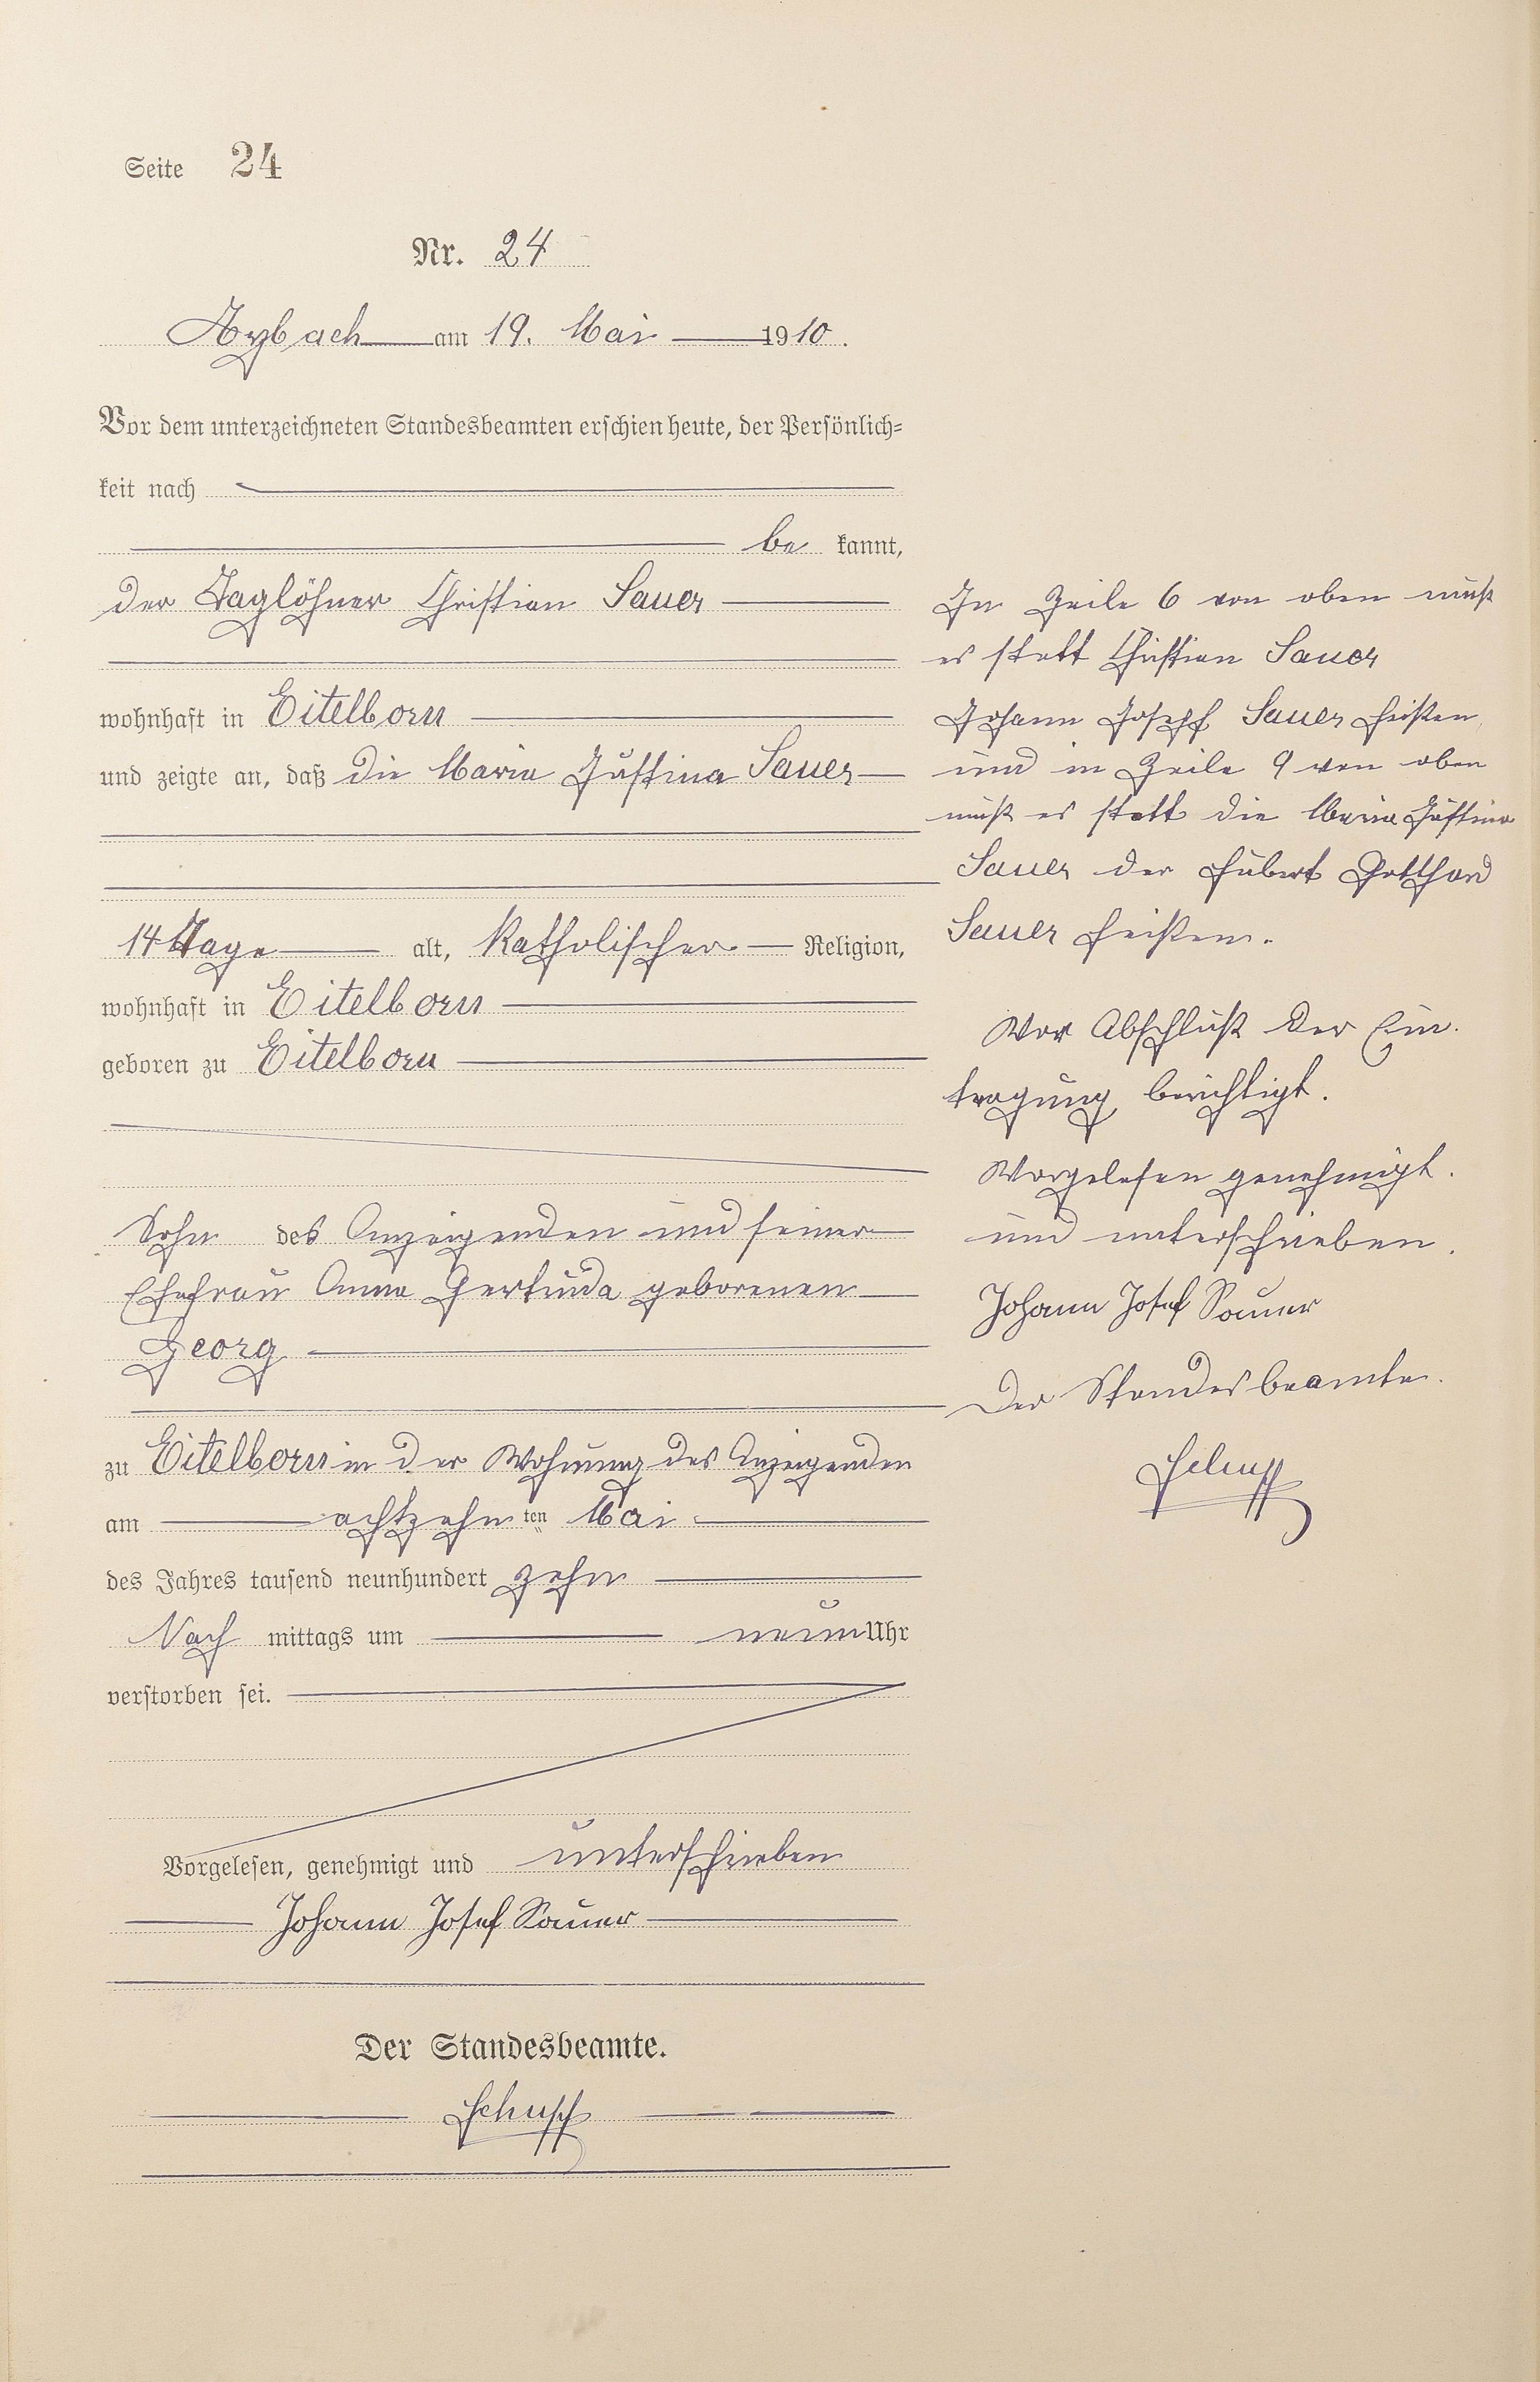 Seite 24
Nr. 24
Arzbach am 19. Mai 1910.
Vor dem unterzeichneten Standesbeamten erschien heute, der Persönlich-
keit nach
be kannt,
der Taglöhner Christian Sauer
wohnhaft in Eitelborn
und zeigte an, daß die Maria Justina Sauer
14 Tage alt, katholischer Religion,
wohnhaft in Eitelborn
geboren zu Eitelborn
Sohn des Anzeigenden und seiner
Ehefrau Anna Gertruda geborenen
Georg
zu Eitelborn in der Wohnung des Anzeigenden
am achtzehn ten Mai
des Jahres tausend neunhundert zehn
Nach mittags um neun Uhr
verstorben sei.
Vorgelesen, genehmigt und unterschrieben
Johann Josef Sauer
Der Standesbeamte.
Schupp
In Zeile 6 von oben muß
es statt Christian Sauer
Johann Joseph Sauer heißen,
und in Zeile 9 von oben
muß es statt die Maria Justina
Sauer der Hubert Gotthard
Sauer heißen.
Vor Abschluß der Ein-
tragung berichtigt.
Vorgelesen genehmigt.
und unterschrieben.
Johann Josef Sauer
Der Standesbeamte.
Schupp